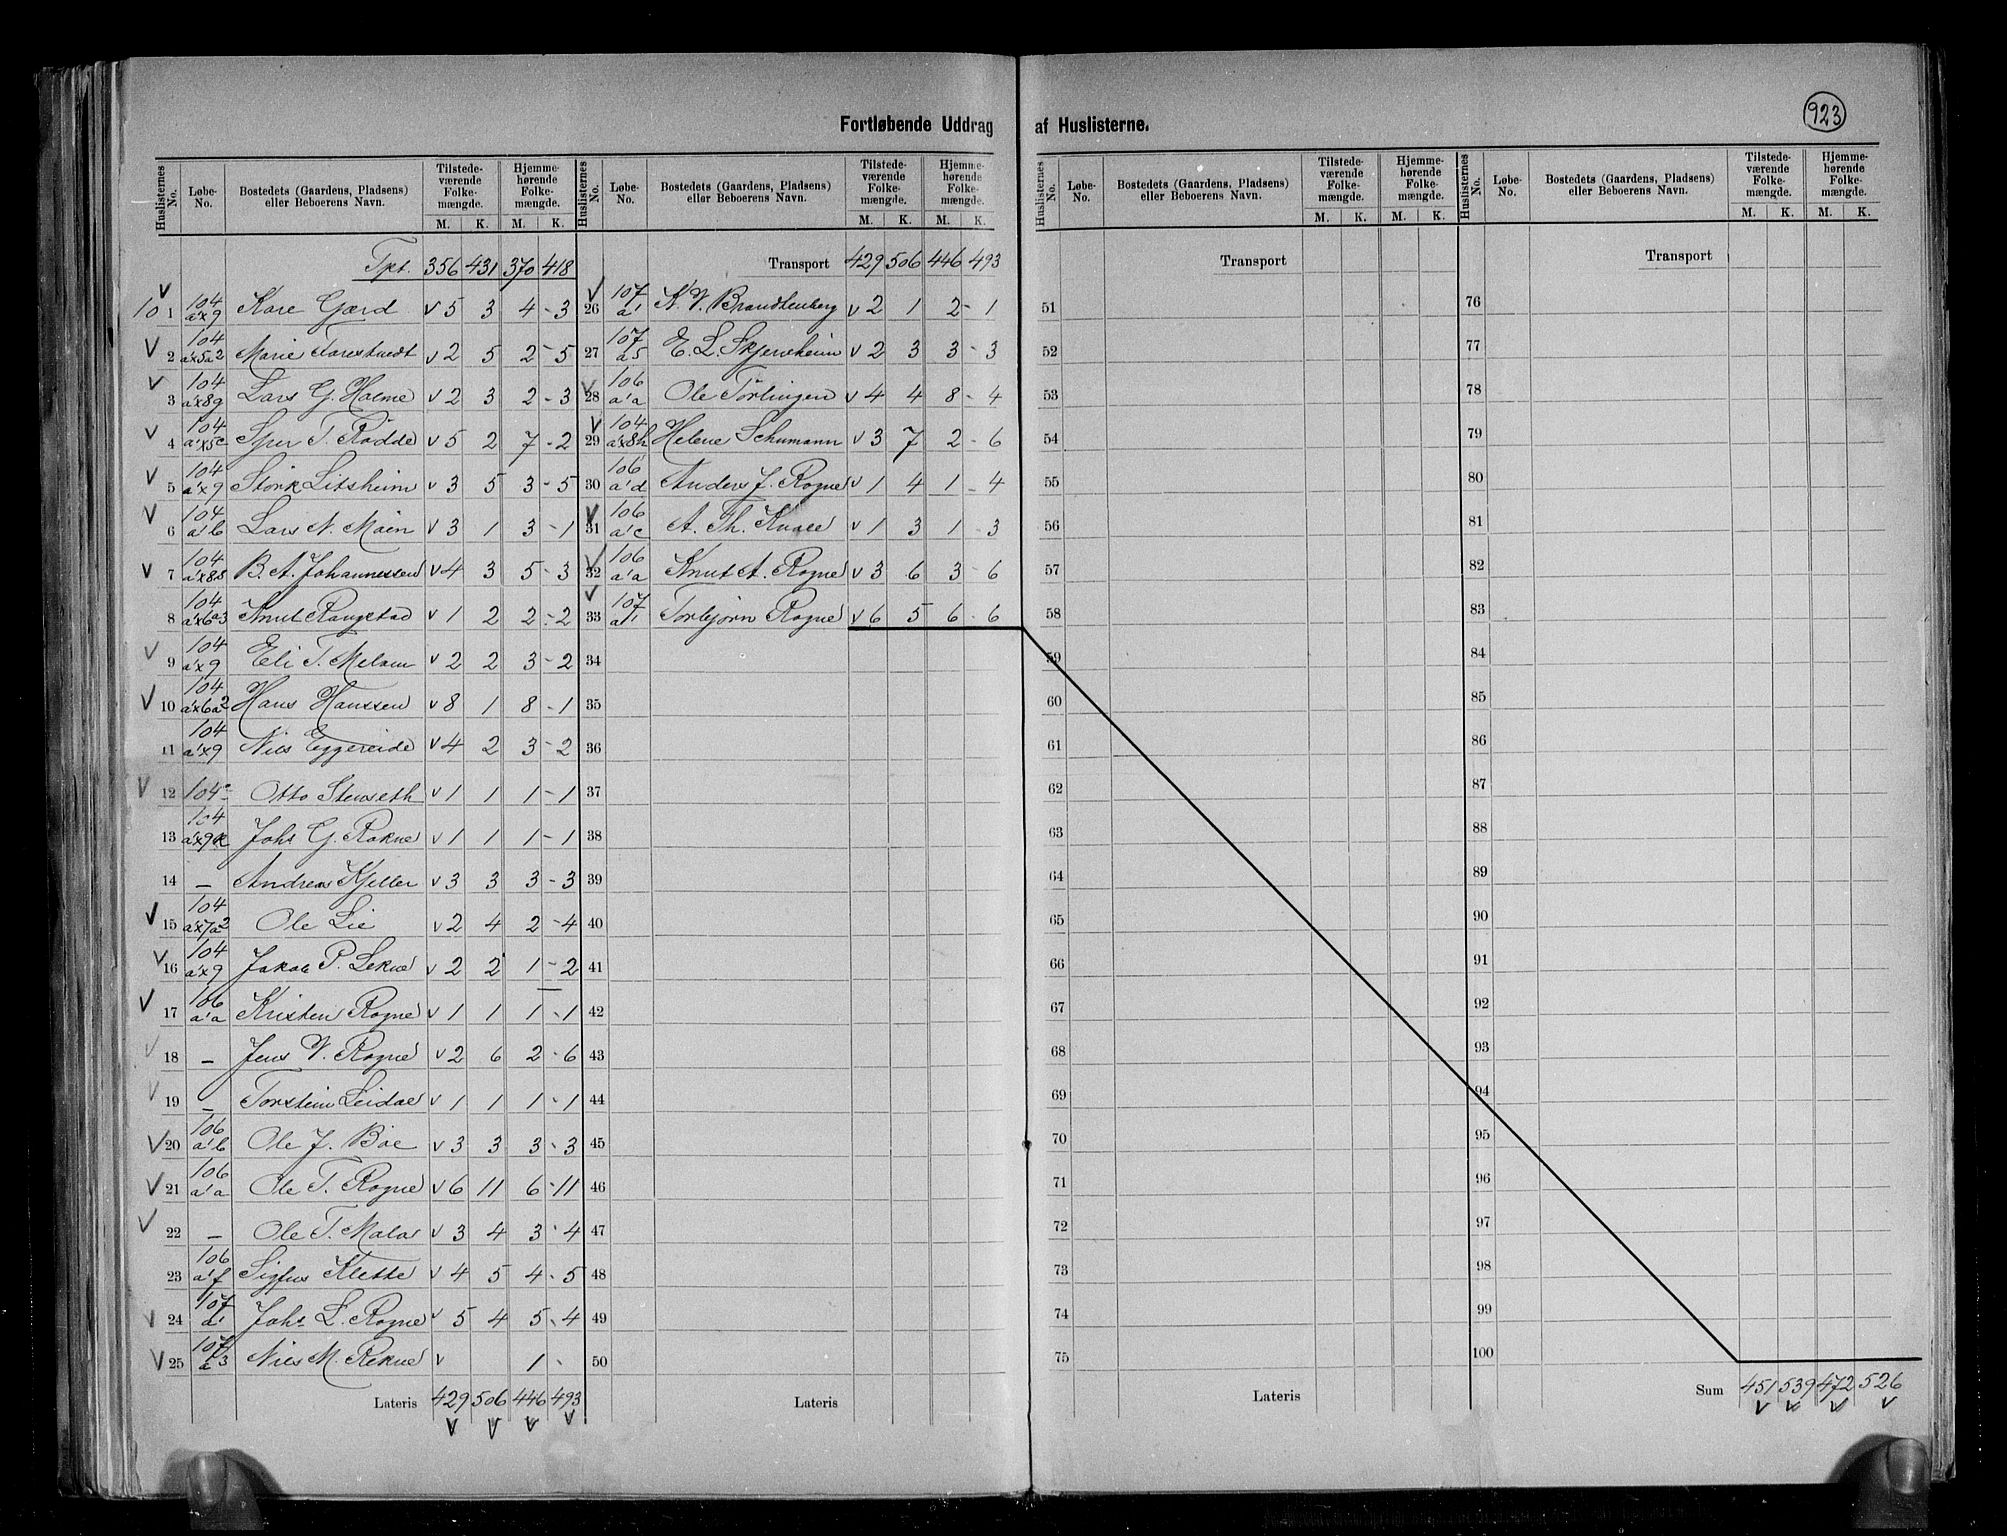 923
Fortløbende Uddrag af Huslisterne.
Huslisternes No. Løbe-No. Bostedets (Gaardens, Pladsens) eller Beboerens Navn. Tilstedeværende Folkemængde. M. K. Hjemmehørende Folkemængde. M. K.
Tpt. 356 431 370 418
10 1 104 a'x9 Kare Gjærd v 5 3 4 - 3
2 104 a'x5a2 Marie v 2 5 2 - 5
3 104 a'x8g Lars G. Holme v 2 3 2 - 3
4 104 a'x5c Sjur T. Rødde v 5 2 7 - 2
5 104 a'x9 Størk Litsheim v 3 5 3 - 5
6 104 a'b Lars N. Moen v 3 1 3 - 1
7 104 a'x8s B. A. Johannessen v 4 3 5 - 3
8 104 a'x6a3 Knut Rongstad v 1 2 2 - 2
9 104 a'x9 Eli T. Melam v 2 2 3 - 2
10 104 a'x6a2 Hans Hanssen v 8 1 8 - 1
11 104 a'x9 Nils Eggereide v 4 2 3 - 2
12 104 Otto Stenseth v 1 1 1 - 1
13 104 a'x9 Johs G. Rokne v 1 1 1 - 1
14 — Andreas Kjeller v 3 3 3 - 3
15 104 a'x7a2 Ole Lie v 2 4 2 - 4
16 104 a'x9 Jakob P. Lekve v 2 2 1 - 2
17 106 a'a Kristen Rogne v 1 1 1 - 1
18 — Jens V. Rogne v 2 6 2 - 6
19 — Torstein Leidal v 1 1 1 - 1
20 106 a'b Ole J. Bøe v 3 3 3 - 3
21 106 a'a Ole T. Rogne v 6 11 6 - 11
22 — Ole T. v 3 4 3 - 4
23 106 a'f Sigfus Klette v 4 5 4 - 5
24 107 a' Johs L. Rogne v 5 4 5 - 4
25 107 a3 Nils M. Rekve v 1 -
Lateris 429 506 446 493
Huslisternes No. Løbe-No. Bostedets (Gaardens, Pladsens) eller Beboerens Navn. Tilstedeværende Folkemængde. M. K. Hjemmehørende Folkemængde. M. K.
Transport 429 506 446 493
26 107 a' K. V. Brandtenberg v 2 1 2 - 1
27 107 a5 E. L. Skjerveheim v 2 3 3 - 3
28 106 a'a Ole Tørlingen v 4 4 8 - 4
29 104 a'x8h Helene Schumann v 3 7 2 - 6
30 106 a'd Anders J. Rogne v 1 4 1 - 4
31 106 a'c A. Th. Kvale v 1 3 1 - 3
32 106 a'a Knut A. Rogne v 3 6 3 - 6
33 107 a1' Torbjørn Rogne v 6 5 6 - 6
34
35
36
37
38
39
40
41
42
43
44
45
46
47
48
49
50
Lateris
Huslisternes No. Løbe-No. Bostedets (Gaardens, Pladsens) eller Beboerens Navn. Tilstedeværende Folkemængde. M. K. Hjemmehørende Folkemængde. M. K.
Transport
51
52
53
54
55
56
57
58
59
60
61
62
63
64
65
66
67
68
69
70
71
72
73
74
75
Lateris
Huslisternes No. Løbe-No. Bostedets (Gaardens, Pladsens) eller Beboerens Navn. Tilstedeværende Folkemængde. M. K. Hjemmehørende Folkemængde. M. K.
Transport
76
77
78
79
80
81
82
83
84
85
86
87
88
89
90
91
92
93
94
95
96
97
98
99
100
Sum 451 539 472 526